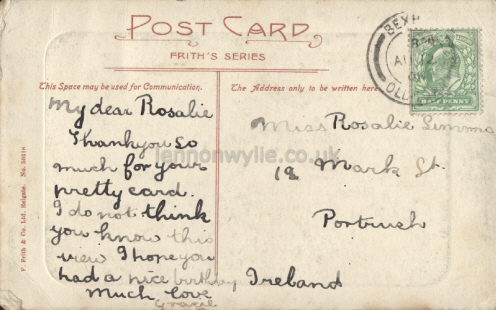 POST CARD
FRITH'S SERIES
This Space may be used for Communication.
The Address only to be written here
My dear Rosalie
Thankyou so
much for your
pretty card.
I do not think
you know this
view I hope you
had a nice birthday
Much love
Gracie
Miss Rosalie
12 Mark St.
Portrush
Ireland
F. Frith & Co. Ltd. Reigate. No.
HALF PENNY
BEXH
jennonwylie.co.uk